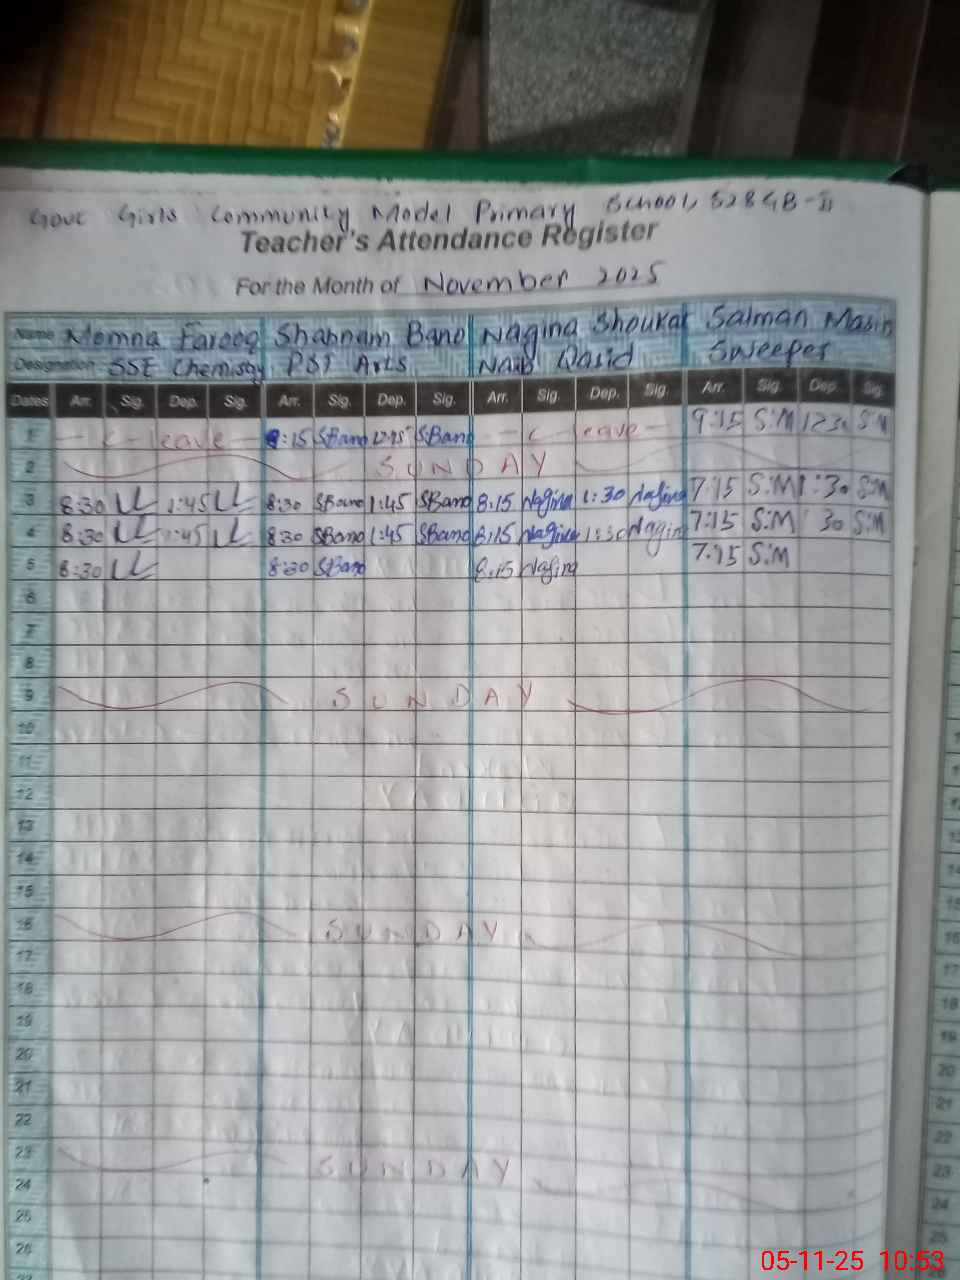 Govt Girls Community Model Primary School, 528 GB-II
Teacher's Attendance Register
For the Month of November 2025
Name Momna Farooq Shabnam Bano Nagina Shoukat Salman Masih
Designation SSE Chemistry PST Arts Naib Qasid Sweeper
Dates Arr. Sig. Dep. Sig. Arr. Sig. Dep. Sig. Arr. Sig. Dep. Sig. Arr. Sig. Dep. Sig.
1 - C leave - 9:15 SBano 12:45 SBano - C leave - 9:15 S.M 12:30 S.M
2 SUNDAY
3 8:30 1:45 8:30 SBano 1:45 SBano 8:15 Nagina 1:30 Nagina 7:15 S:M 1:30 S:M
4 8:30 1:45 8:30 SBano 1:45 SBano 8:15 Nagina 1:30 Nagina 7:15 S:M 30 S:M
5 8:30 8:30 SBano 8:15 Nagina 7:15 S:M
6
7
8
9 SUNDAY
10
11
12
13
14
15
16 SUNDAY
17
18
19
20
21
22
23 SUNDAY
24
25
26
05-11-25 10:53